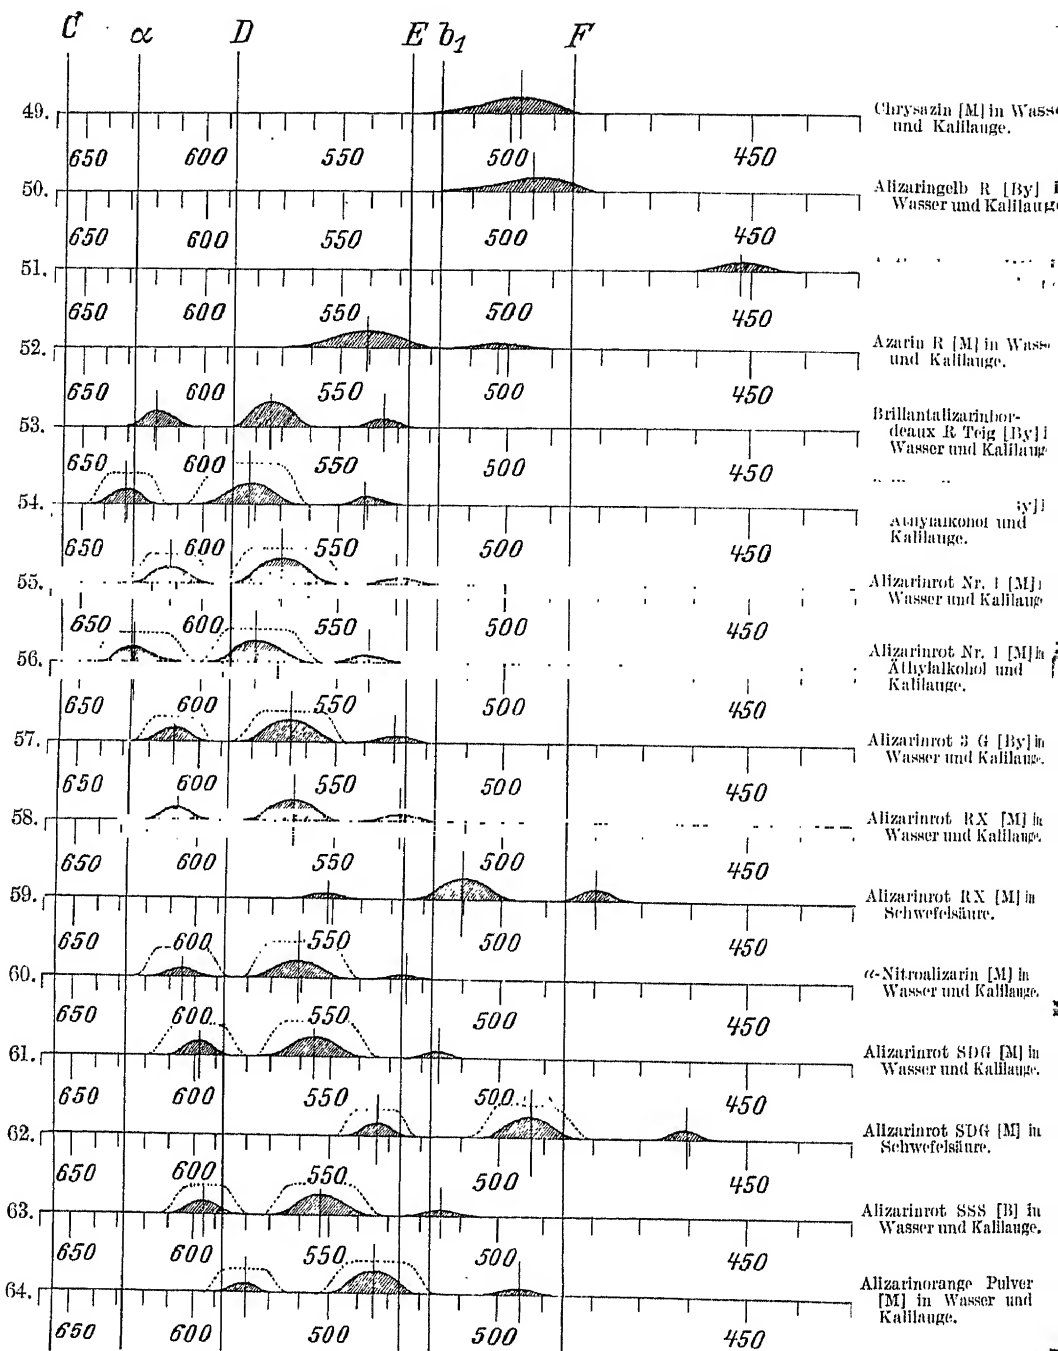 C α D E b₁ F
49.
Chrysazin [M] in Wasse
und Kalilauge.
650 600 550 500 450
50.
Alizaringelb R [By] i
Wasser und Kalilauge
650 600 550 500 450
51.
650 600 550 500 450
52.
Azarin R [M] in Wasse
und Kalilauge.
650 600 550 500 450
53.
Brillantalizarinbor-
deaux R Teig [By] i
Wasser und Kalilaug
650 600 550 500 450
54.
y] i
Äthylalkohol und
Kalilauge.
650 600 550 500 450
55.
Alizarinrot Nr. 1 [M] i
Wasser und Kalilaug
650 600 550 500 450
56.
Alizarinrot Nr. 1 [M] in
Äthylalkohol und
Kalilauge.
650 600 550 500 450
57.
Alizarinrot 3 G [By] in
Wasser und Kalilauge.
650 600 550 500 450
58.
Alizarinrot RX [M] in
Wasser und Kalilauge.
650 600 550 500 450
59.
Alizarinrot RX [M] in
Schwefelsäure.
650 600 550 500 450
60.
α-Nitroalizarin [M] in
Wasser und Kalilauge.
650 600 550 500 450
61.
Alizarinrot SDG [M] in
Wasser und Kalilauge.
650 600 550 500 450
62.
Alizarinrot SDG [M] in
Schwefelsäure.
650 600 550 500 450
63.
Alizarinrot SSS [B] in
Wasser und Kalilauge.
650 600 550 500 450
64.
Alizarinorange Pulver
[M] in Wasser und
Kalilauge.
650 600 500 500 450